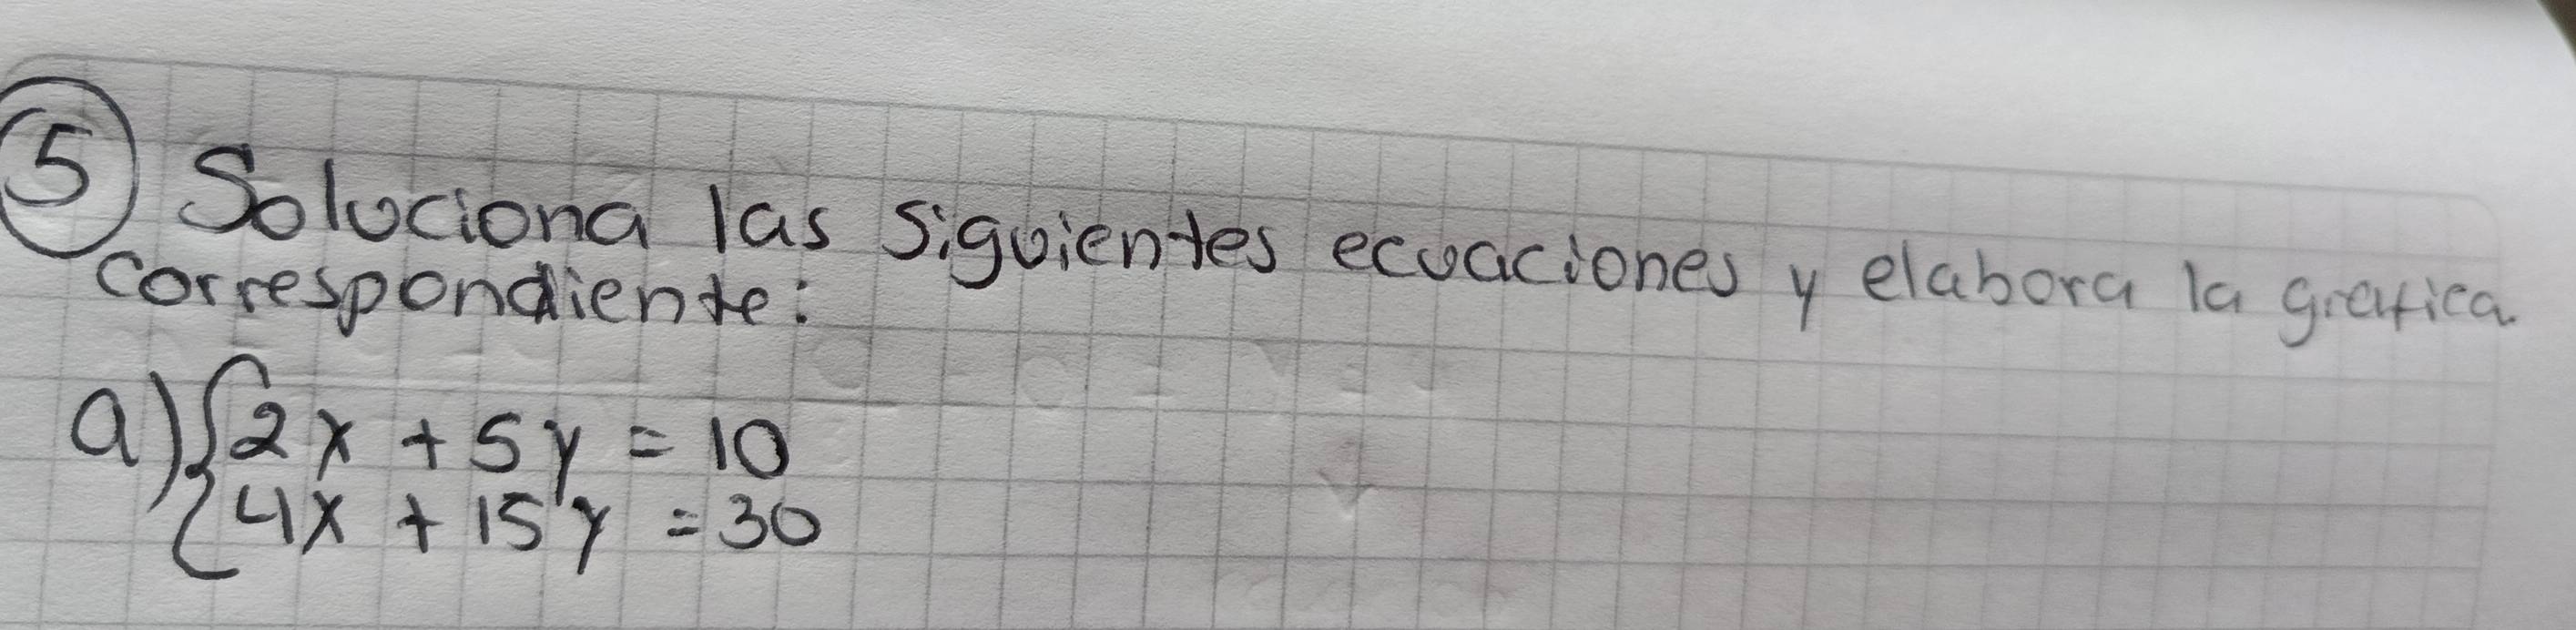 5 Soluciona las siguientes ecuaciones y elabora la grafica.
correspondiente:
a) { 2x + 5y = 10
4x + 15y = 30